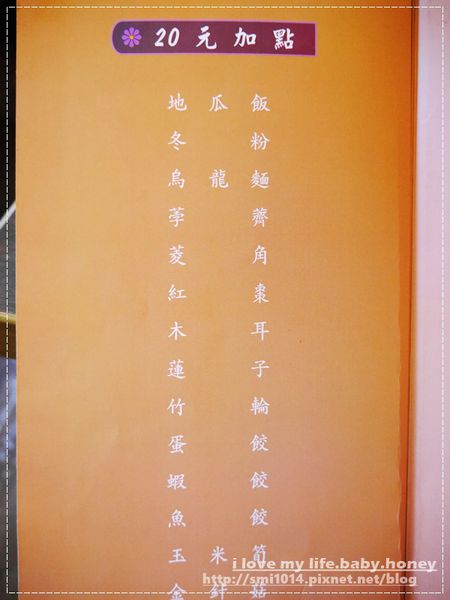 20元加點
地瓜飯
冬粉
烏龍麵
荸薺
菱角
紅棗
木耳
蓮子
竹輪
蛋餃
蝦餃
魚餃
玉米筍
金針菇
i love my life.baby.honey
http://smi1014.pixnet.net/blog